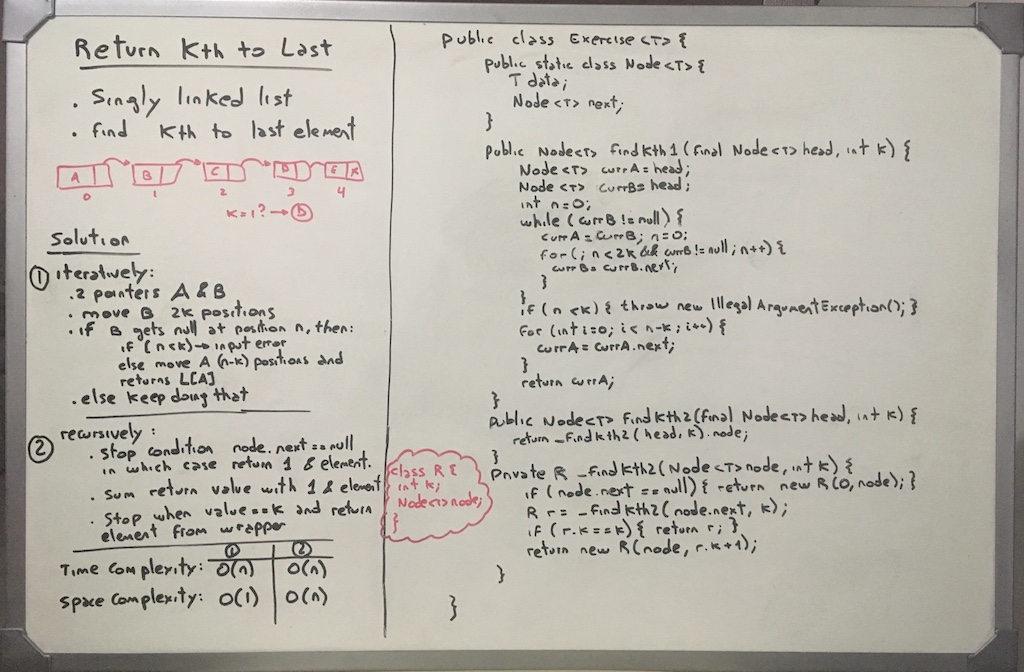 Return Kth to Last
. Singly linked list
. find Kth to last element
A B C D E
0 1 2 3 4
K=1? → D
Solution
① iteratively:
. 2 pointers A & B
. move B 2k positions
. if B gets null at position n, then:
if (n<k) → input error
else move A (n-k) positions and
returns L[A]
. else keep doing that
② recursively:
. stop condition node.next == null
in which case return 1 & element.
. sum return value with 1 & element
. Stop when value==k and return
element from wrapper
① ②
Time Complexity: O(n) O(n)
Space Complexity: O(1) O(n)
public class Exercise<T> {
public static class Node<T> {
T data;
Node<T> next;
}
public Node<T> findKth1(final Node<T> head, int k) {
Node<T> currA = head;
Node<T> currB = head;
int n=0;
while (currB != null) {
currA = currB; n=0;
for(; n<2k && currB != null; n++) {
currB = currB.next;
}
}
if (n<k) { throw new IllegalArgumentException(); }
for (int i=0; i < n-k; i++) {
currA = currA.next;
}
return currA;
}
public Node<T> findKth2(final Node<T> head, int k) {
return _findKth2(head, k).node;
}
private R _findKth2(Node<T> node, int k) {
if (node.next == null) { return new R(0, node); }
R r = _findKth2(node.next, k);
if (r.k == k) { return r; }
return new R(node, r.k+1);
}
}
class R {
int k;
Node<T> node;
}